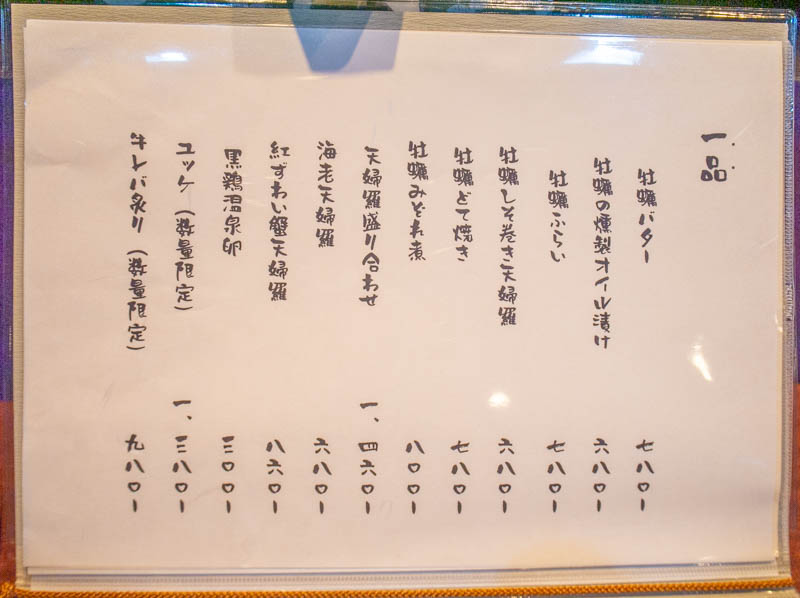 一品
牡蠣バター 七八〇ー
牡蠣の燻製オイル漬け 六八〇ー
牡蠣ふらい 七八〇ー
牡蠣しそ巻き天婦羅 六八〇ー
牡蠣どて焼き 七八〇ー
牡蠣みぞれ煮 八〇〇ー
天婦羅盛り合わせ 一、四六〇ー
海老天婦羅 六八〇ー
紅ずわい蟹天婦羅 八六〇ー
黒鶏温泉卵 三〇〇ー
ユッケ（数量限定） 一、三八〇ー
牛レバ炙り（数量限定） 九八〇ー